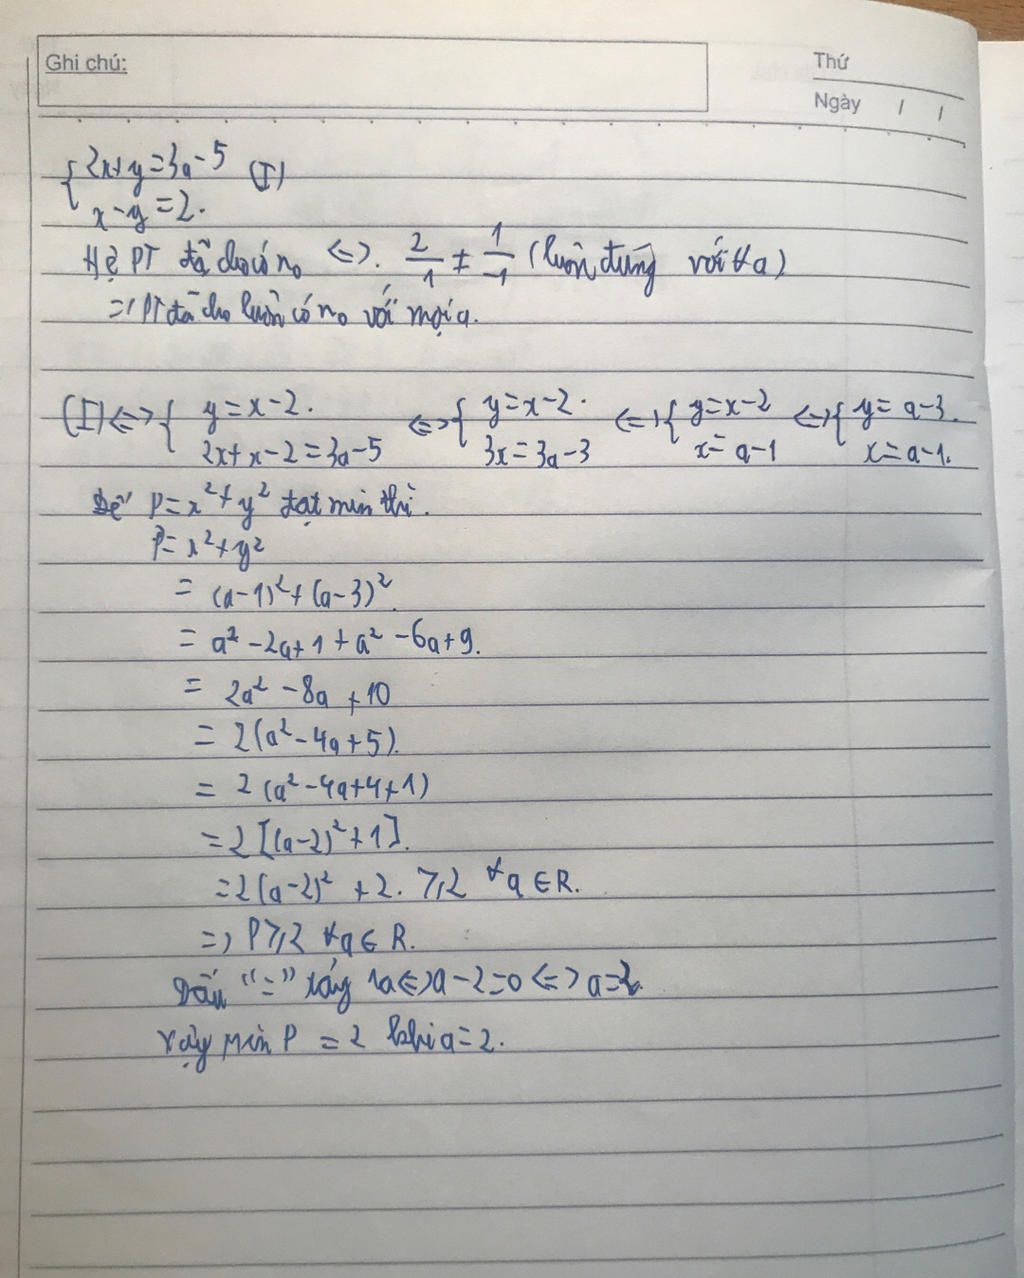 Ghi chú:
Thứ
Ngày / /
{ 2x+y=3a-5 (I)
x-y=2.
Hệ PT đã cho có n0 <=>. 2/1 ≠ 1/-1 (luôn đúng với ∀a)
=> PT đã cho luôn có n0 với mọi a.
(I) <=> { y=x-2. <=> { y=x-2. <=> { y=x-2 <=> { y=a-3.
2x+x-2=3a-5 3x=3a-3 x=a-1 x=a-1.
Để P=x²+y² đạt min thì.
P=x²+y²
= (a-1)²+(a-3)².
= a²-2a+1+a²-6a+9.
= 2a²-8a+10
= 2(a²-4a+5).
= 2(a²-4a+4+1)
= 2[(a-2)²+1].
= 2(a-2)²+2. ≥2 ∀a∈R.
=> P≥2 ∀a∈R.
Dấu "=" xảy ra <=> a-2=0 <=> a=2.
Vậy Min P = 2 khi a=2.